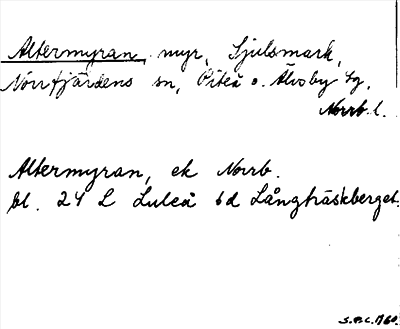 Altermyran, myr, Sjulsmark,
Norrfjärdens sn, Piteå o. Älvsby tg,
Norrb. l.
Altermyran, ek Norrb.
bl. 24 L Luleå 6d Långträskberget.